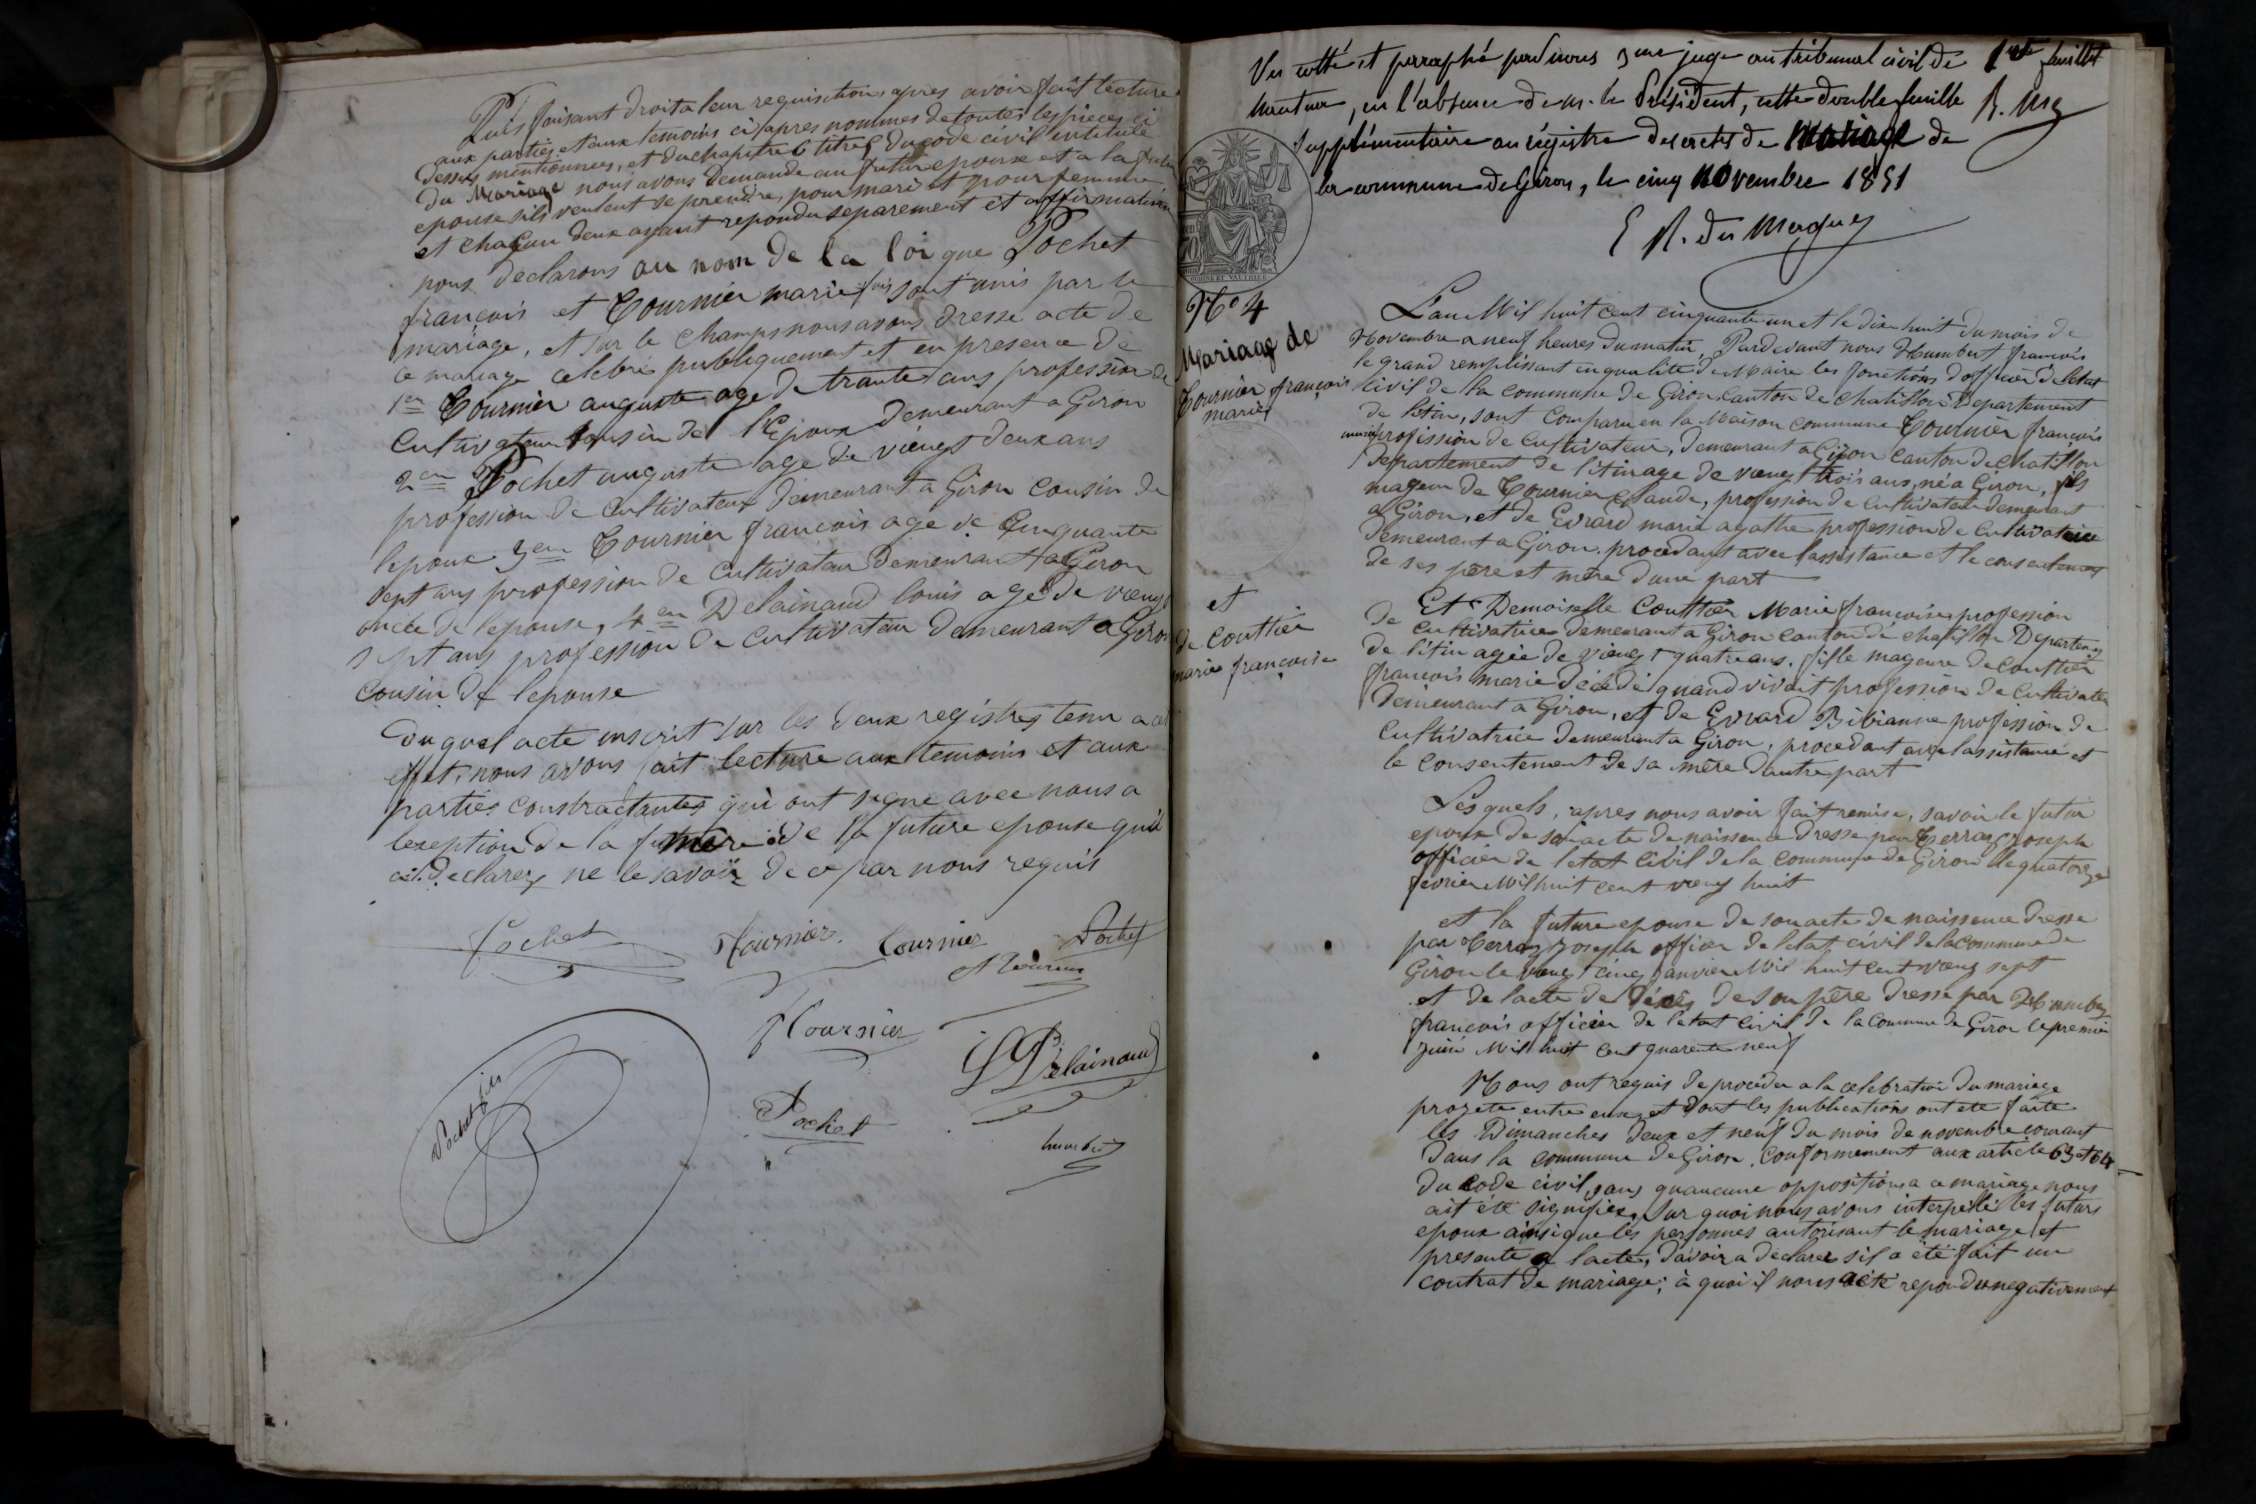 Puis faisant droit a leur requisition, apres avoir fait lecture
aux parties et aux temoins ci apres nommes de toutes les pieces ci
dessus mentionnees, et du chapitre 6 titre 5 du code civil intitulé
du Mariage nous avons demande au futur epoux et a la future
epouse sils veulent se prendre, pour mari et pour femme
et chaqun deux ayant repondu separement et affirmativem
nous declarons au nom de la loi que Pochet
françois et Tournier marie sont unis par le
mariage, et sur le champs nous avons dressé acte de
ce mariage celebré publiquement et en presence de
1er Tournier auguste age de trante ans profession de
Cultivateur Cousin de l'Epoux demeurant a Giron
2em Pochet auguste age de viengt deux ans
profession de Cultivateur demeurant a Giron Cousin de
lepoux 3em Tournier francois age de Cinquante
sept ans profession de Cultivateur Demeurant a Giron
oncle de lepouse, 4em Delainaud louis age de vieng
sept ans profession de Cultivateur demeurant a Giron
Cousin de lepouse
Du quel acte inscrit sur les deux registres tenu a cet
effet, nous avons fait lecture aux temoins et aux
parties constractantes qui ont signe avec nous a
lexeption de la mere de la future epouse qui
declarez ne le savoir de ce par nous requis
Pochet Tournier Tournier Pochet
Tournier
Tournier
L Delainaud
Pochet fils
Pochet
humbert
Vu cotté et parraphé par nous 3me juge au tribunal civil de 1er feuillet
Nantua, en l'absence de M. le Président, cette double feuille
Supplémentaire au régistre des actes de Mariage de
la commune de Giron, le cinq Novembre 1851
No 4
Mariage de
Tournier françois
marie
et
de Couttier
marie françoise
L'an Mil huit cent cinquante un et le dix huit du mois de
Novembre a neuf heures du matin, Pardevant nous Humbert francois
le grand remplissant en qualite de Maire les fonctions dofficier de letat
Civil de la commune de Giron, Canton de Chatillon Departement
de l'Ain, sont comparu en la Maison commune Tournier françois
marie profission de Cultivateur, demeurant a Giron canton de Chatillon
Departement de l'Ain age de vieng trois ans, né a Giron, fils
majeur de Tournier Claude, profession de Cultivateur demeurant
a Giron, et de Evrard marie agathe profession de Cultivatrice
Demeurant a Giron, procedant avec lassistance et le consentement
de ses père et mère dune part
Et Demoiselle Couttier Marie françoise profession
de cultivatrice demeurant a Giron canton de Chatillon Departem
de l'Ain agée de viengt quatre ans, fille majeure de Couttier
françois marie décedé quand vivait profession de Cultivateur
Demeurant a Giron, et de Evrard Bibianne profession de
Cultivatrice demeurant a Giron, procedant avec lassistance et
le Consentement de sa mère dautre part
Lesquels, apres nous avoir fait remise, savoir le futur
epoux de son acte de naissence dresse par Terraz joseph
officier de letat Civil de la Commune de Giron le quatorze
fevrier Mil huit cent vieng huit
et la future epouse de son acte de naissence dresse
par Terraz joseph officier de letat civil de la commune de
Giron le vieng cinq janvier Mil huit cent vieng sept
et de lacte de décès de son père dresse par Humbert
françois officier de letat civil de la Commune de Giron le premier
juin Mil huit cent quarente neuf
Nous ont requis de proceder a la celebration du mariage
projete entre eux et dont les publications ont ete faite
les Dimanches deux et neuf du mois de novembre courant
dans la commune de Giron, conformement aux article 63 et 64
du code civil, sans quaucune opposition a ce mariage nous
ait été signifiez, sur quoi nous avons interpellé les futurs
epoux ainsi que les personnes autorisant le mariage et
presente a lacte, davoir a declarer sil a été fait un
contrat de mariage; à quoi il nous a été repondu negativement